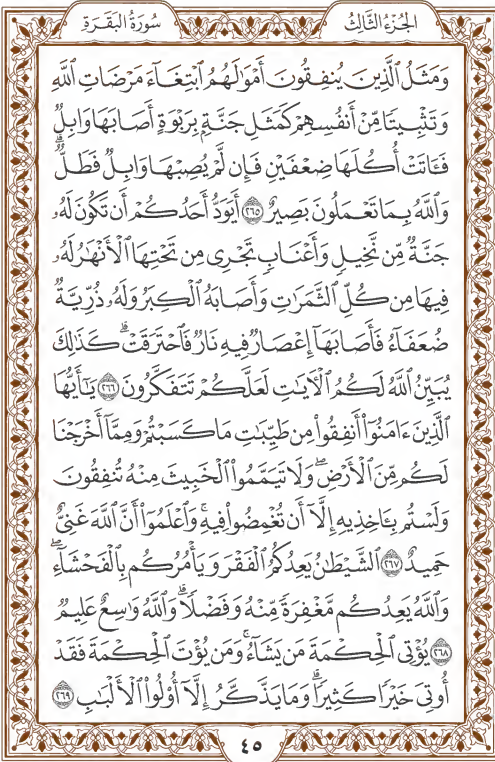 الجزء الثالث
سورة البقرة
وَمَثَلُ ٱلَّذِينَ يُنفِقُونَ أَمْوَٰلَهُمُ ٱبْتِغَآءَ مَرْضَاتِ ٱللَّهِ
وَتَثْبِيتًا مِّنْ أَنفُسِهِمْ كَمَثَلِ جَنَّةٍۭ بِرَبْوَةٍ أَصَابَهَا وَابِلٌ
فَـَٔاتَتْ أُكُلَهَا ضِعْفَيْنِ فَإِن لَّمْ يُصِبْهَا وَابِلٌ فَطَلٌّ ۗ
وَٱللَّهُ بِمَا تَعْمَلُونَ بَصِيرٌ ٢٦٥ أَيَوَدُّ أَحَدُكُمْ أَن تَكُونَ لَهُۥ
جَنَّةٌ مِّن نَّخِيلٍ وَأَعْنَابٍ تَجْرِى مِن تَحْتِهَا ٱلْأَنْهَٰرُ لَهُۥ
فِيهَا مِن كُلِّ ٱلثَّمَرَٰتِ وَأَصَابَهُ ٱلْكِبَرُ وَلَهُۥ ذُرِّيَّةٌ
ضُعَفَآءُ فَأَصَابَهَآ إِعْصَارٌ فِيهِ نَارٌ فَٱحْتَرَقَتْ ۗ كَذَٰلِكَ
يُبَيِّنُ ٱللَّهُ لَكُمُ ٱلْـَٔايَٰتِ لَعَلَّكُمْ تَتَفَكَّرُونَ ٢٦٦ يَٰٓأَيُّهَا
ٱلَّذِينَ ءَامَنُوٓا۟ أَنفِقُوا۟ مِن طَيِّبَٰتِ مَا كَسَبْتُمْ وَمِمَّآ أَخْرَجْنَا
لَكُم مِّنَ ٱلْأَرْضِ ۖ وَلَا تَيَمَّمُوا۟ ٱلْخَبِيثَ مِنْهُ تُنفِقُونَ
وَلَسْتُم بِـَٔاخِذِيهِ إِلَّآ أَن تُغْمِضُوا۟ فِيهِ ۚ وَٱعْلَمُوٓا۟ أَنَّ ٱللَّهَ غَنِىٌّ
حَمِيدٌ ٢٦٧ ٱلشَّيْطَٰنُ يَعِدُكُمُ ٱلْفَقْرَ وَيَأْمُرُكُم بِٱلْفَحْشَآءِ ۖ
وَٱللَّهُ يَعِدُكُم مَّغْفِرَةً مِّنْهُ وَفَضْلًا ۗ وَٱللَّهُ وَٰسِعٌ عَلِيمٌ
٢٦٨ يُؤْتِى ٱلْحِكْمَةَ مَن يَشَآءُ ۚ وَمَن يُؤْتَ ٱلْحِكْمَةَ فَقَدْ
أُوتِىَ خَيْرًا كَثِيرًا ۗ وَمَا يَذَّكَّرُ إِلَّآ أُو۟لُوا۟ ٱلْأَلْبَٰبِ ٢٦٩
٤٥